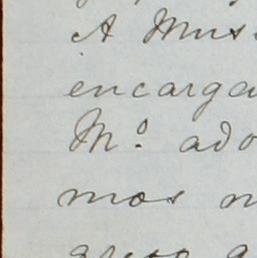 A Mus
encarga
Mº. ado
mos n